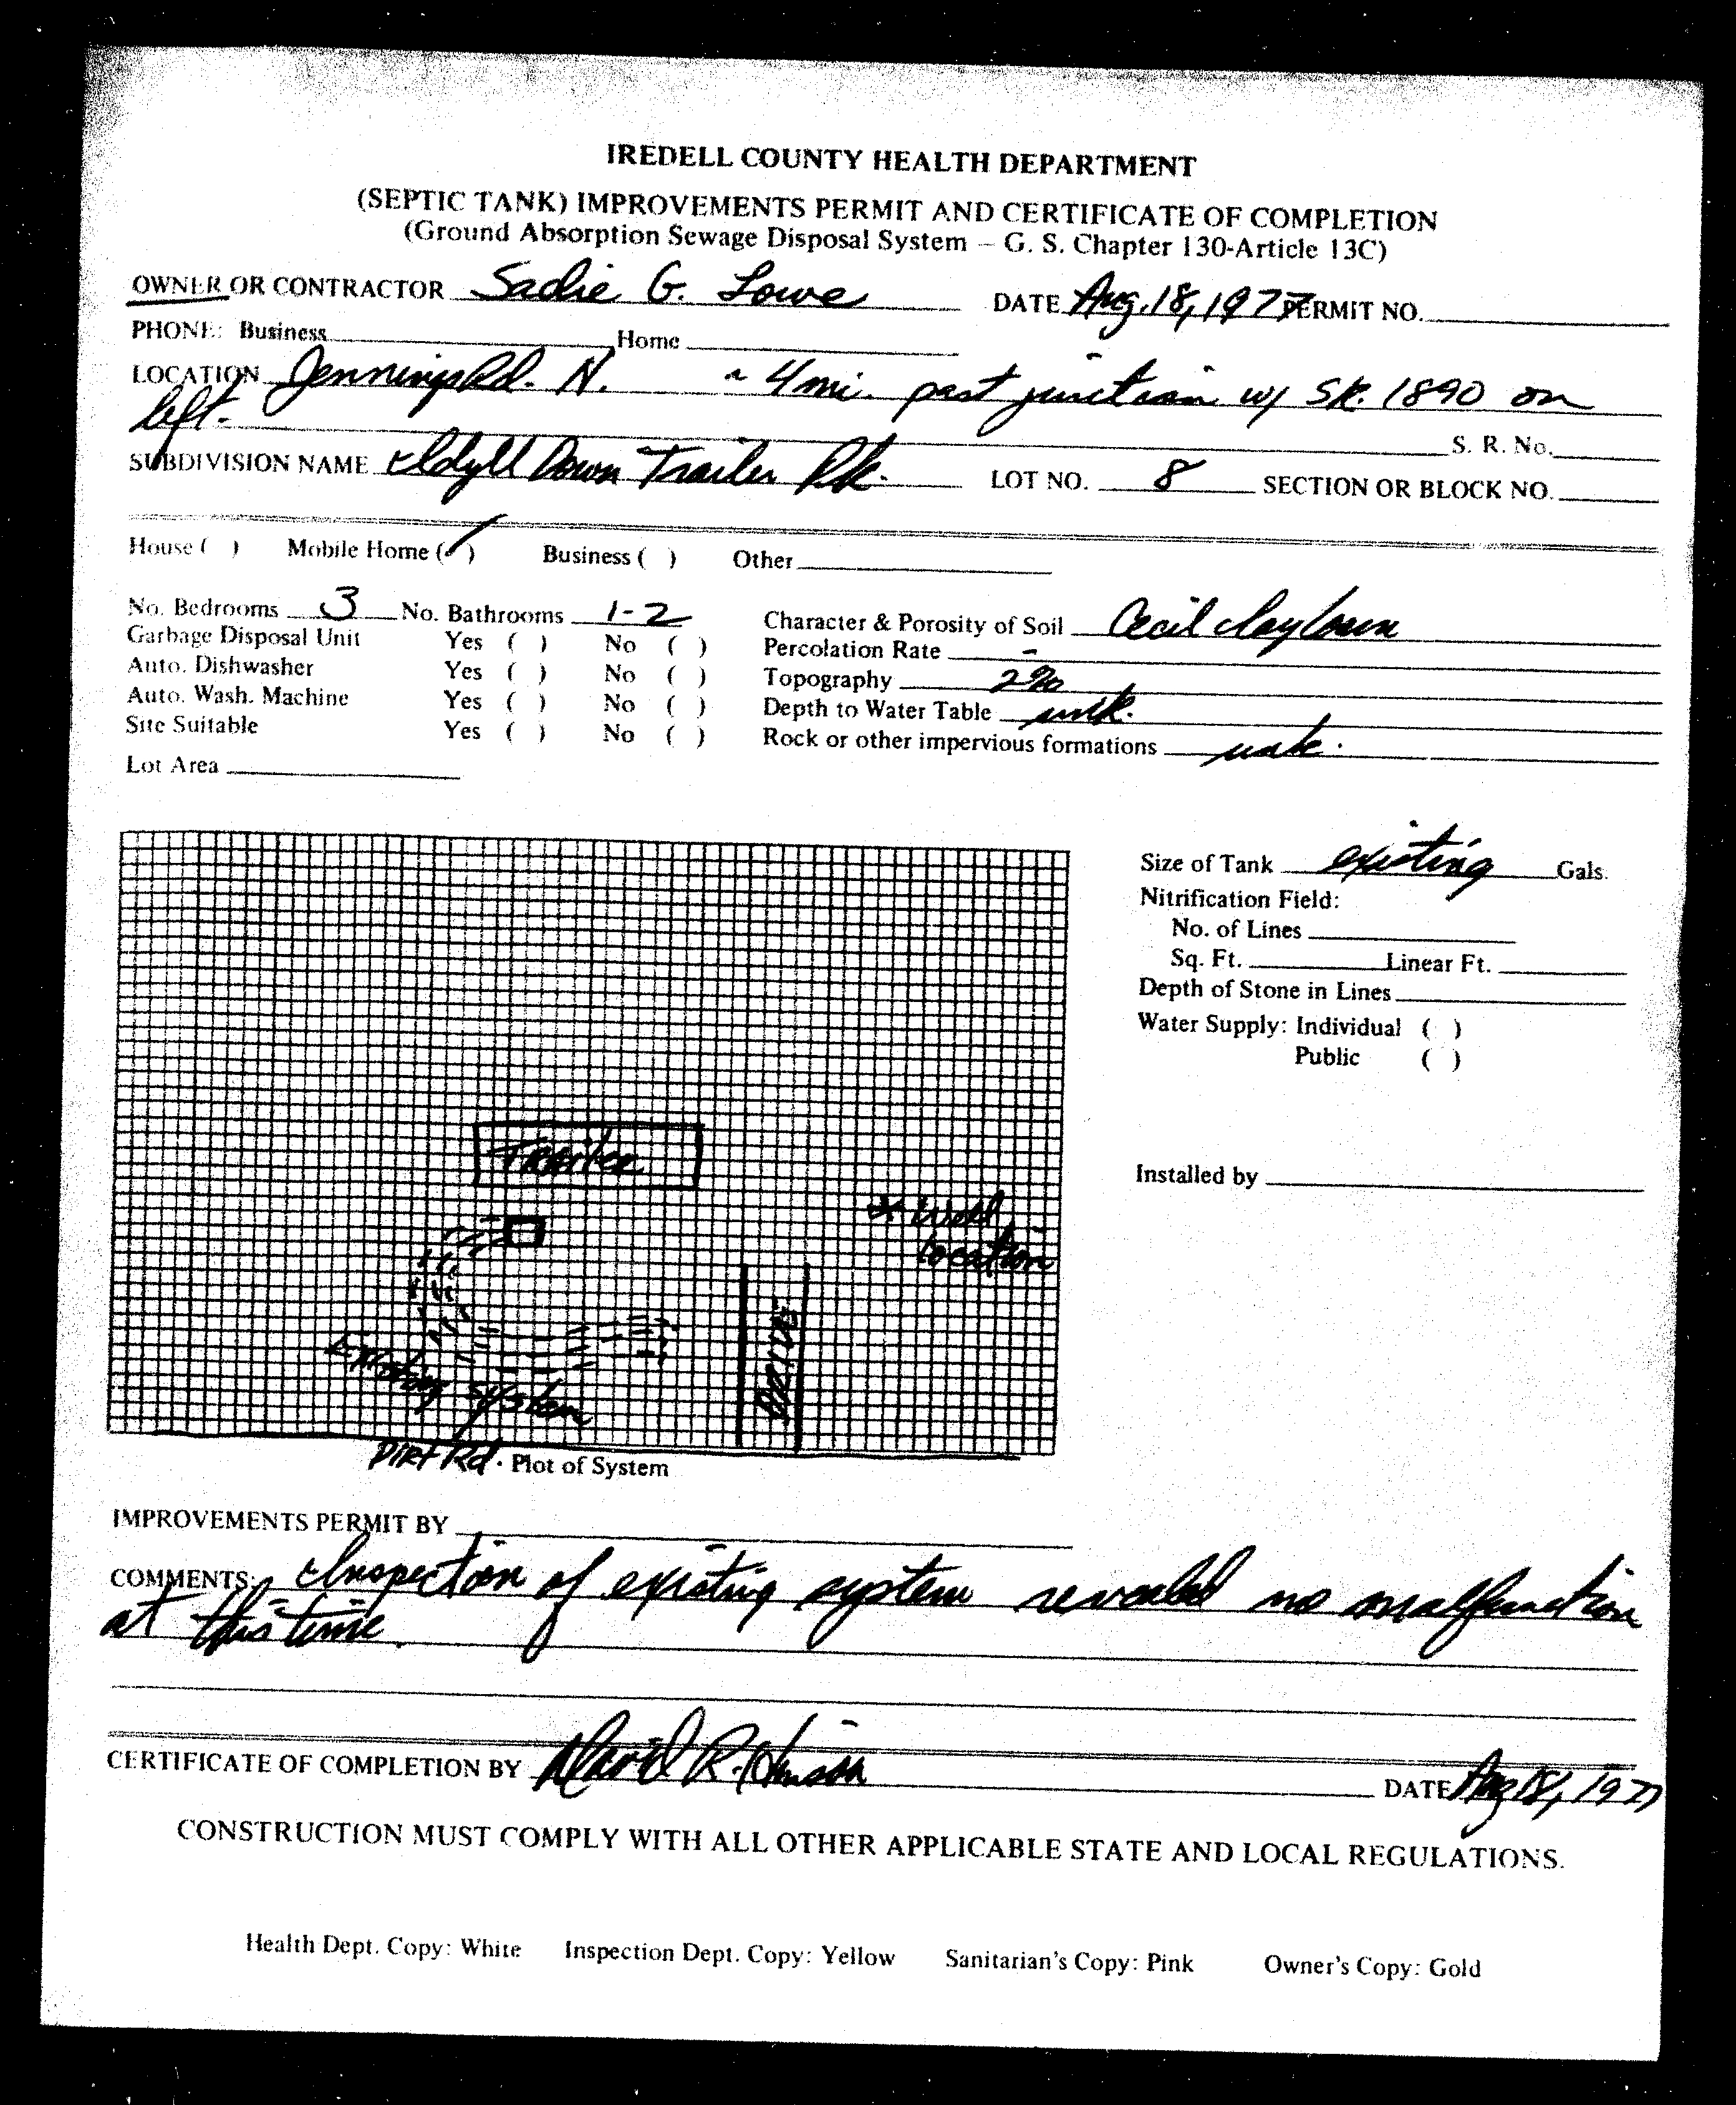 IREDELL COUNTY HEALTH DEPARTMENT
(SEPTIC TANK) IMPROVEMENTS PERMIT AND CERTIFICATE OF COMPLETION
(Ground Absorption Sewage Disposal System – G. S. Chapter 130-Article 13C)
OWNER OR CONTRACTOR Sadie G. Lowe DATE Aug. 18, 1977 PERMIT NO.
PHONE: Business Home
LOCATION Jennings Rd. N. ~ 4 mi. past junction w/ SR. 1890 on
left. S. R. No.
SUBDIVISION NAME Idyll Down Trailer Pk. LOT NO. 8 SECTION OR BLOCK NO.
House ( ) Mobile Home (✓) Business ( ) Other
No. Bedrooms 3 No. Bathrooms 1-2 Character & Porosity of Soil Cecil clay loam
Garbage Disposal Unit Yes ( ) No ( ) Percolation Rate -
Auto. Dishwasher Yes ( ) No ( ) Topography 2%
Auto. Wash. Machine Yes ( ) No ( ) Depth to Water Table unk.
Site Suitable Yes ( ) No ( ) Rock or other impervious formations unk.
Lot Area
Size of Tank existing Gals.
Nitrification Field:
No. of Lines
Sq. Ft. Linear Ft.
Depth of Stone in Lines
Water Supply: Individual ( )
Public ( )
Installed by
Trailer
* Well
Location
DRIVE
Existing System
Dirt Rd. Plot of System
IMPROVEMENTS PERMIT BY
COMMENTS: Inspection of existing system revealed no malfunction
at this time.
CERTIFICATE OF COMPLETION BY David R. DATE Aug 18, 1977
CONSTRUCTION MUST COMPLY WITH ALL OTHER APPLICABLE STATE AND LOCAL REGULATIONS.
Health Dept. Copy: White Inspection Dept. Copy: Yellow Sanitarian's Copy: Pink Owner's Copy: Gold